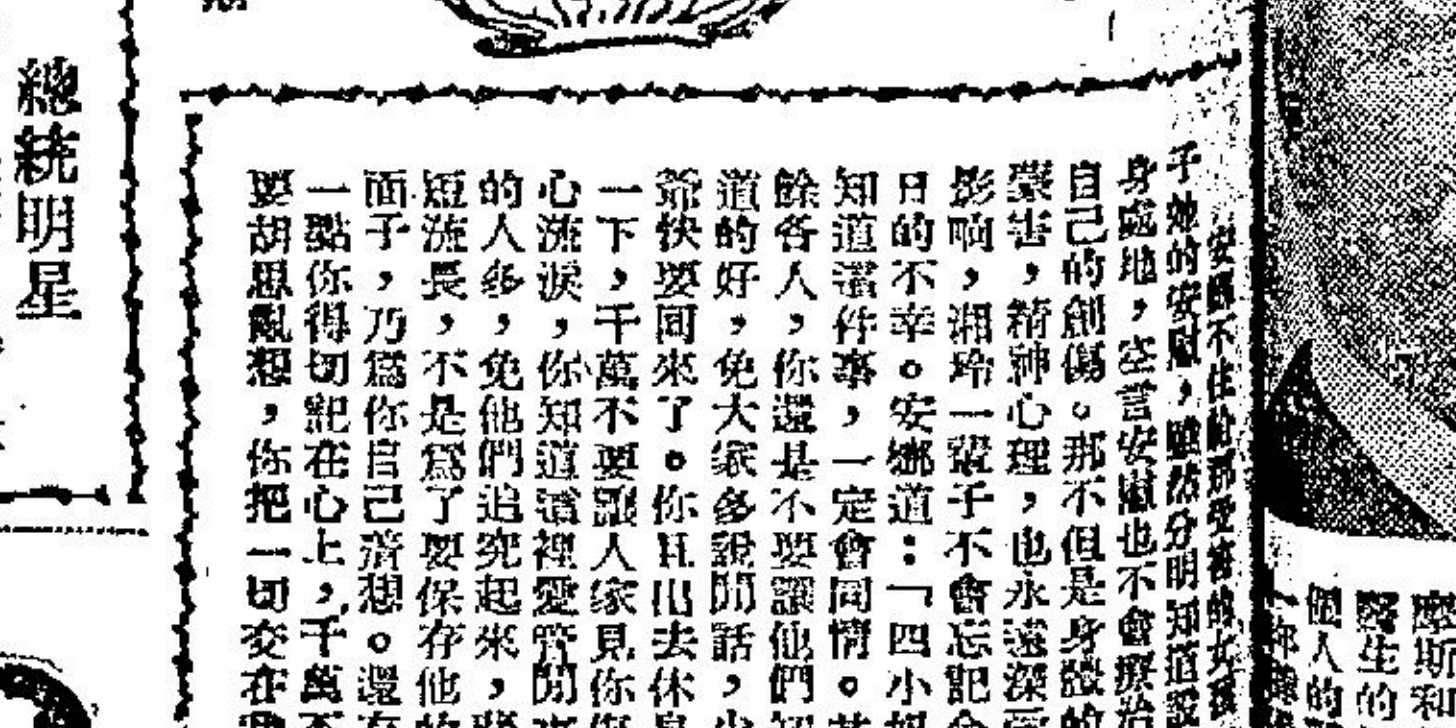 安娜不住給那受害的女孩
子她的安慰，雖然分明知道設
身處地，空言安慰也不會療治
自己的創傷。那不但是身體的
蒙害，精神心理，也永遠深受
影响，湘玲一輩子不會忘記今
日的不幸。安娜道：「四小姐
知道這件事，一定會同情。其
餘各人，你還是不要讓他們知
道的好，免大家多說閒話，少
爺快要回來了。你且出去休息
一下，千萬不要讓人家見你傷
心流淚，你知道這裡愛管閒事
的人多，免他們追究起來，
短流長，不是爲了要保存他的
面子，乃爲你自己着想。還有
一點你得切記在心上，千萬不
要胡思亂想，你把一切交在我
總統明星
摩斯和
醫生的
個人的